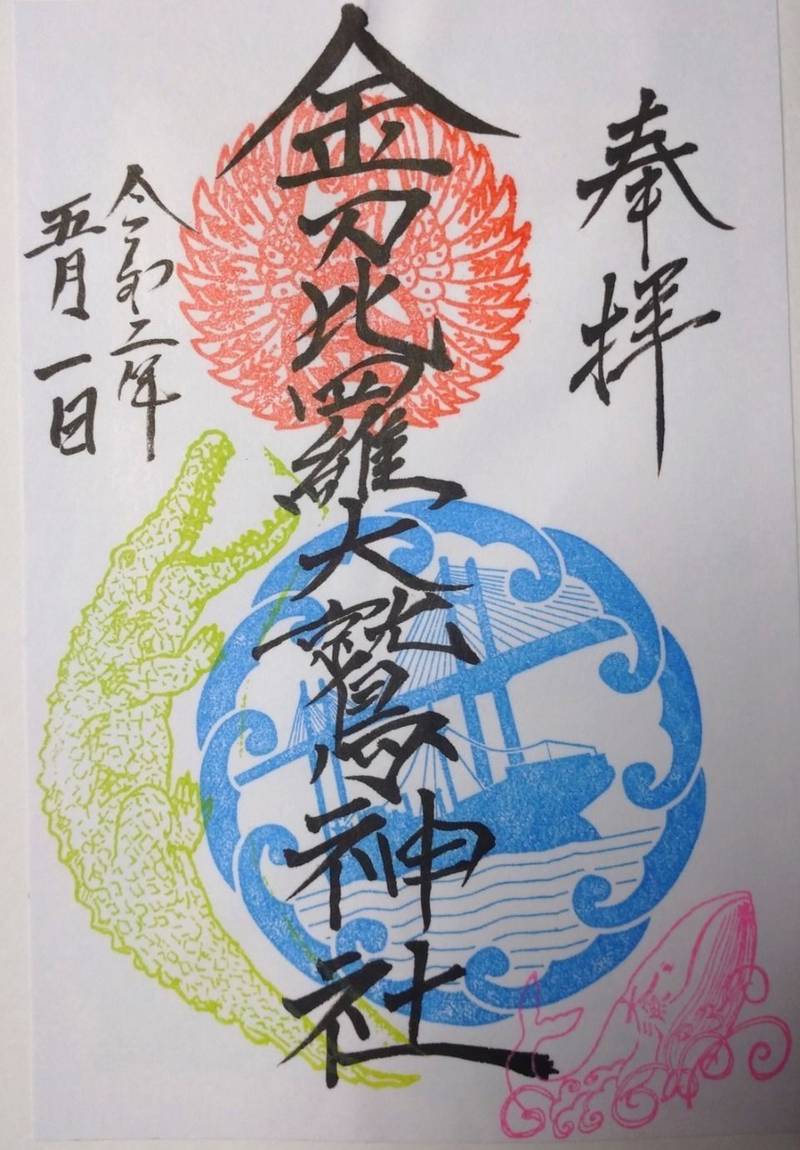 奉拝
金刀比羅大鷲神社
令和二年
五月一日